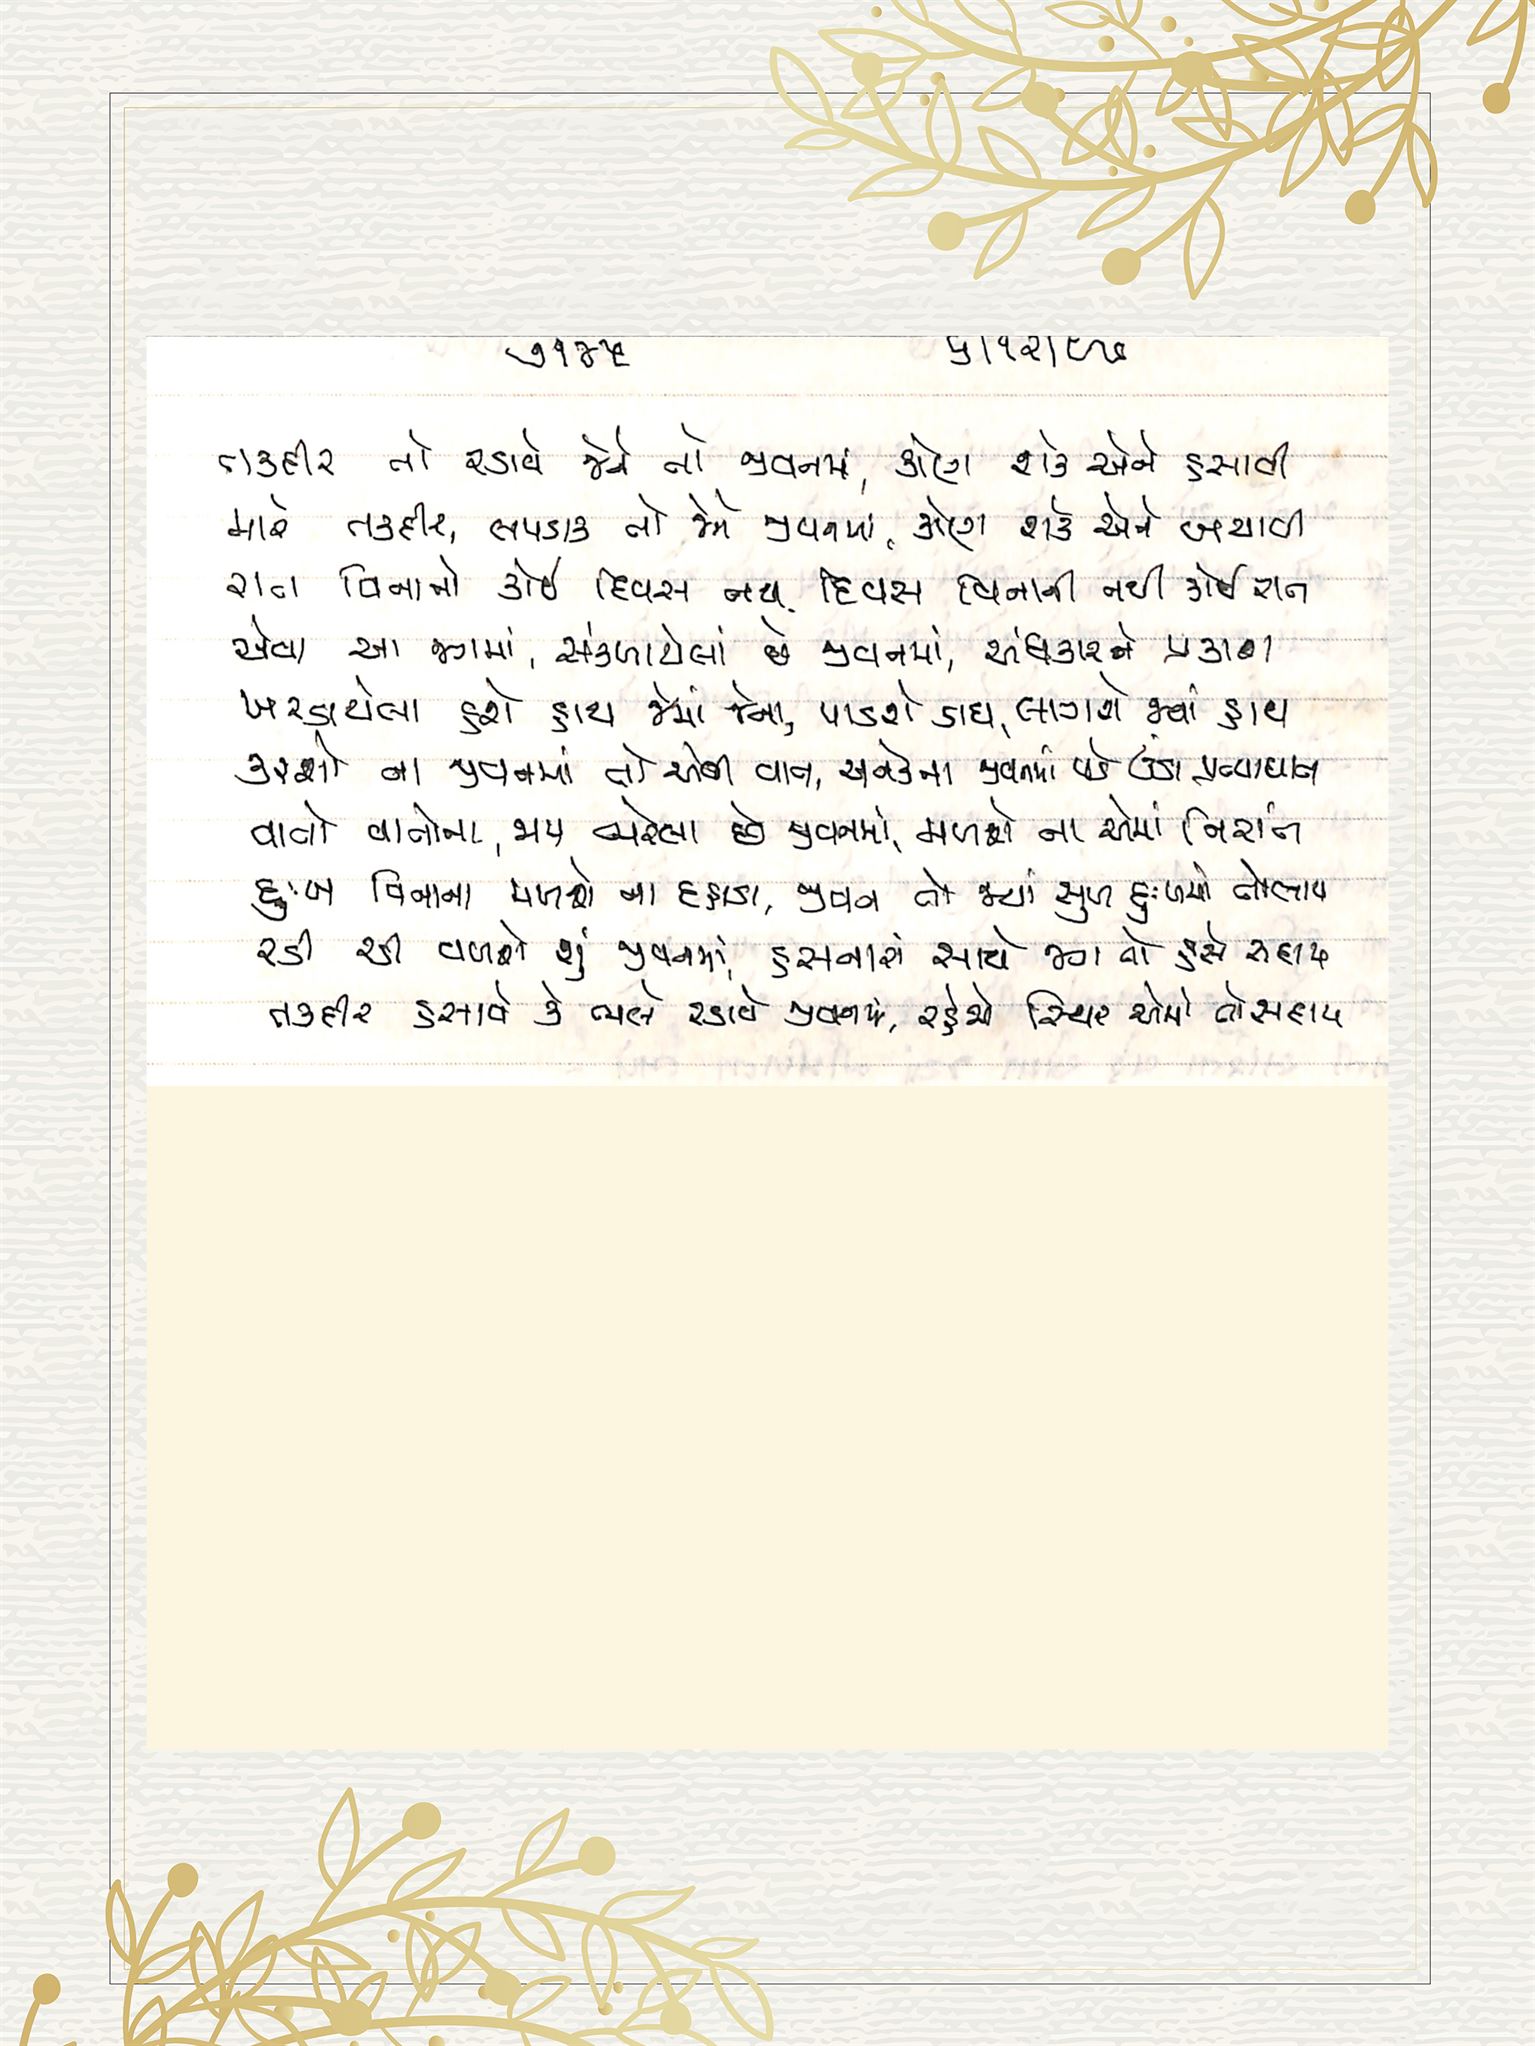 ૭૧૪૫ ૫/૧૨/૯૭
તકદીર તો રડાવે જેને તો જીવનમાં, કોણ શકે એને હસાવી
મારે તકદીર, લપડાક તો જેને જીવનમાં, કોણ શકે એને બચાવી
રાત વિનાનો કોઈ દિવસ નથી, દિવસ વિનાની નથી કોઈ રાત
એવા આ જગમાં, સંકળાયેલાં છે જીવનમાં, અંધકારને પ્રકાશ
ખરડાયેલા હશે હાથ જેમાં જેના, પાડશે ડાઘ, લાગશે જ્યાં હાથ
કરશો ના જીવનમાં તો એવી વાત, અનેકના જીવનમાં પડે ઉંડા પ્રત્યાઘાત
વાતો વાતોના, ભય ભરેલા છે જીવનમાં, મળશે ના એમાં નિરાંત
દુઃખ વિનાના મળશે ના દહાડા, જીવન તો જ્યાં સુખ દુઃખમાં તોલાય
રડી રડી વળશે શું જીવનમાં, હસનારાં સાથે જગ તો હસે સદાય
તકદીર હસાવે કે ભલે રડાવે જીવનમાં, રહેજો સ્થિર એમાં તો સદાય